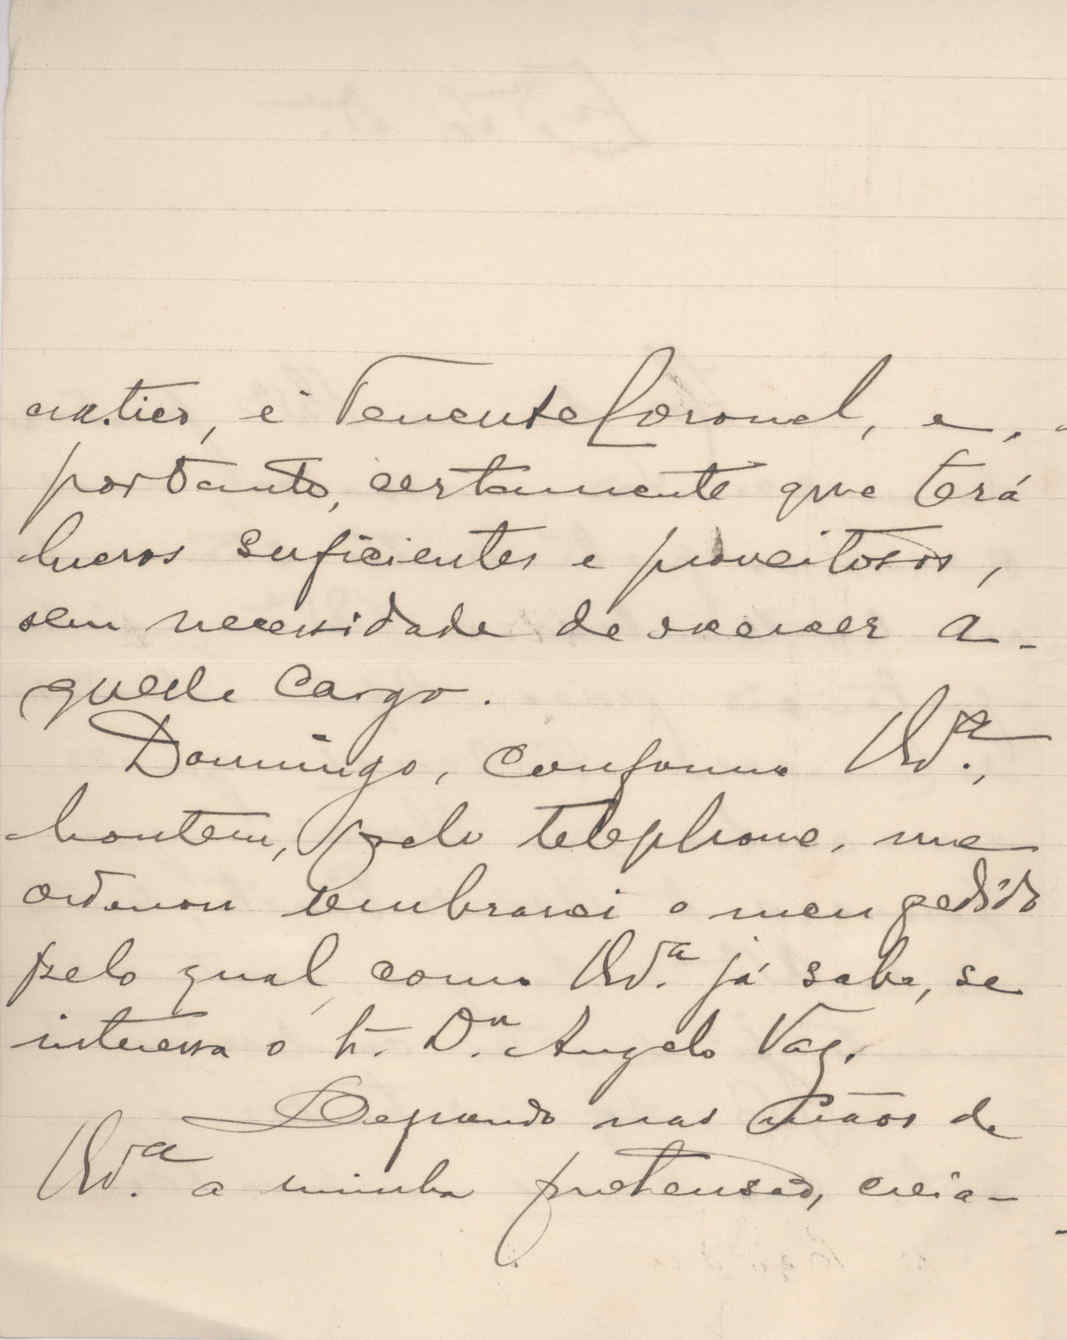 cratico, é Tenente Coronel, e,
portanto, certamente que terá
lucros suficientes e proveitosos,
sem necessidade de exercer a-
quele cargo.
Domingo, conforme V.ª,
hontem, pelo telephone, me
ordenou lembrarei o meu pedido
pelo qual, como V.ª já sabe, se
interessa o Sr. Dr. Angelo Vaz.
Depondo nas mãos de
V.ª a minha pretensão, creia-